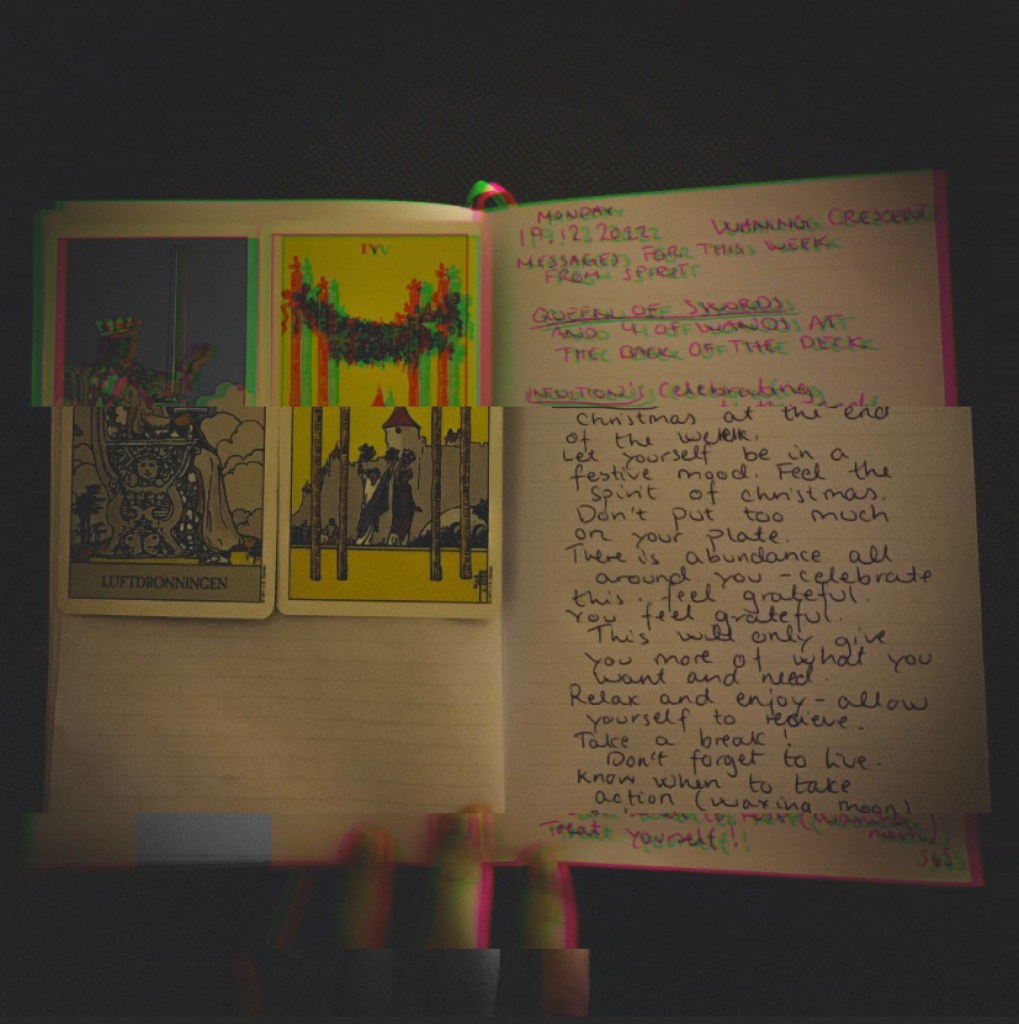 IV
LUFTDRONNINGEN
MONDAY
19.12.2022 WANING CRESCENT
MESSAGES FOR THIS WEEK
FROM SPIRIT
QUEEN OF SWORDS
AND 4 OF WANDS AT
THE BACK OF THE DECK
INTUITION: Celebrating
christmas at the end
of the week.
Let yourself be in a
festive mood. Feel the
spirit of christmas.
Don't put too much
on your plate.
There is abundance all
around you - celebrate
this. feel grateful.
You feel grateful.
This will only give
you more of what you
want and need.
Relax and enjoy - allow
yourself to recieve.
Take a break!
Don't forget to live.
Know when to take
action (waxing moon)
(waning
moon)
Treat yourself!!